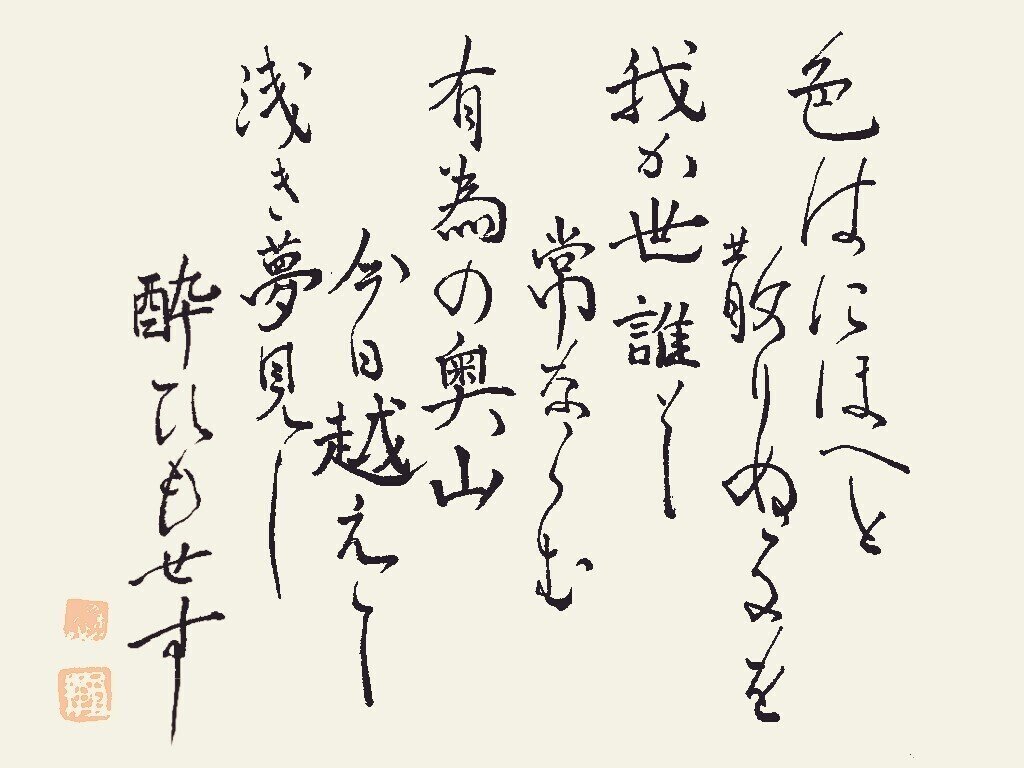 色はにほへと
散りぬるを
我か世誰そ
常ならむ
有為の奥山
今日越えて
浅き夢見し
酔ひもせす